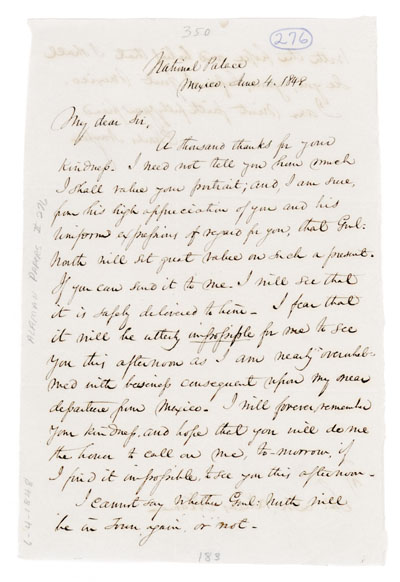 350
276
National Palace
Mexico, June 4. 1848
My dear Sir,
A thousand thanks for your
kindness. I need not tell you how much
I shall value your portrait; and, I am sure,
from his high appreciation of you and his
uniform expressions of regard for you, that Genl:
North will set great value on such a present.
If you can send it to me. I will see that
it is safely delivered to him - I fear that
it will be utterly impossible for me to see
you this afternoon as I am nearly overwhel-
med with business consequent upon my near
departure from Mexico. I will forever remember
your kindness, and hope that you will do me
the honor to call on me, to-morrow, if
I find it impossible, to see you this afternoon-
I cannot say whether Genl: North will
be in Town, again, or not -
183